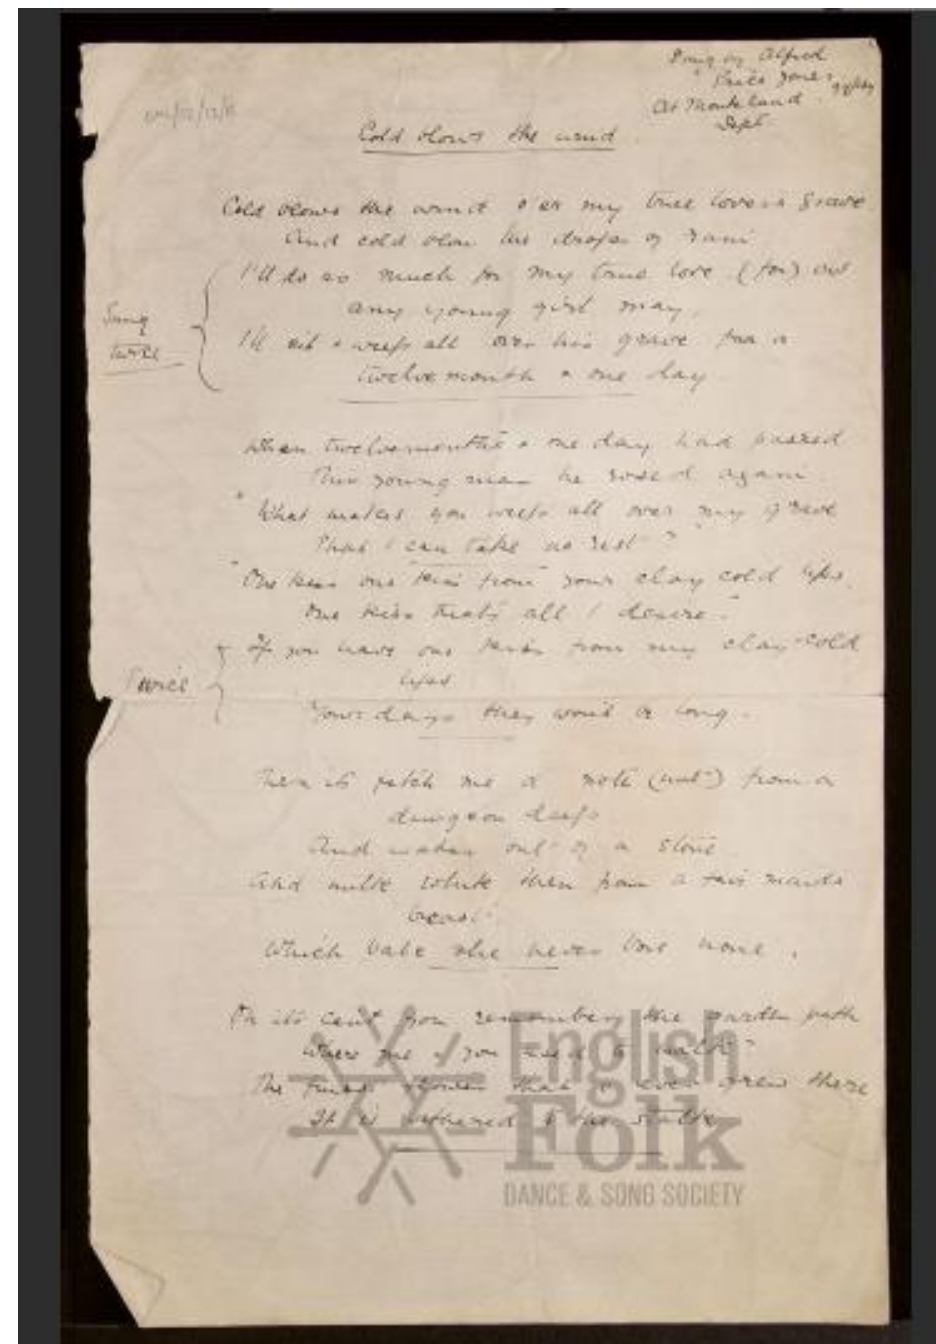 Sung by Alfred
Price Jones
At Monkland
Sept
Cold blows the wind
Cold blows the wind o'er my true love's grave
And cold blow the drops of rain
I'll do as much for my true love (for) as
any young girl may,
Sung
twice
I'll sit & weep all over his grave for a
twelvemonth & one day
When twelvemonths & one day had passed
This young man he rosed again
"What makes you weep all over my grave
That I can take no rest?"
"One kiss one kiss from your clay cold lips,
One kiss that's all I desire."
If you have one kiss from my clay-cold
lips
Twice
Your days they won't be long.
Then it's fetch me a note (nut) from a
dungeon deep
And water out of a stone
And milk white then from a fair maids
breast
Which babe she never bore none.
On it's can't you remember the garden path
Where me & you used to walk?
The finest flower that ever grew there
It is withered to the stalk
English
Folk
DANCE & SONG SOCIETY